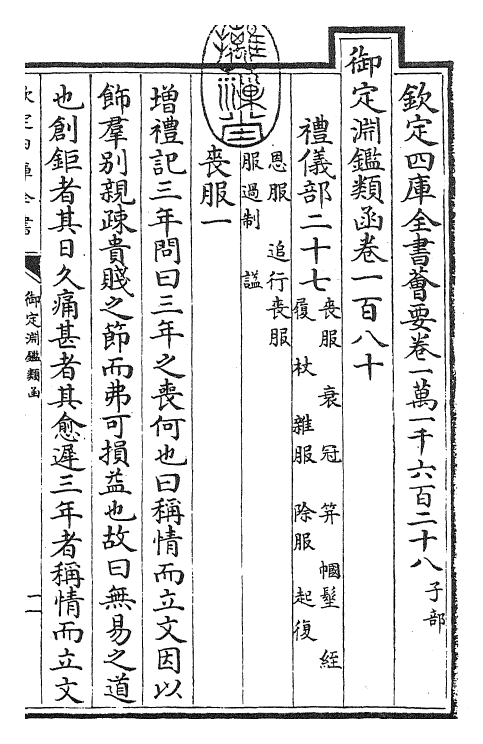 欽定四庫全書薈要卷一萬一千六百二十八 子部
御定淵鑑類函卷一百八十
禮儀部二十七 喪服 衰 冠 笄 幗髽 絰
屨 杖 雜服 除服 起復
恩服 追行喪服
服過制 諡
喪服一
增禮記三年問曰三年之喪何也曰稱情而立文因以
飾羣别親疎貴賤之節而弗可損益也故曰無易之道
也創鉅者其日久痛甚者其愈遲三年者稱情而立文
欽定四庫全書
御定淵鑑類函
一